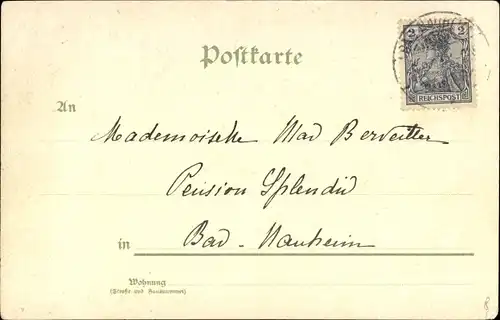 2 2
REICHSPOST
Postkarte
An
Mademoiselle
Pension Splendid
in Bad-Nauheim
Wohnung
(Straße und Hausnummer)